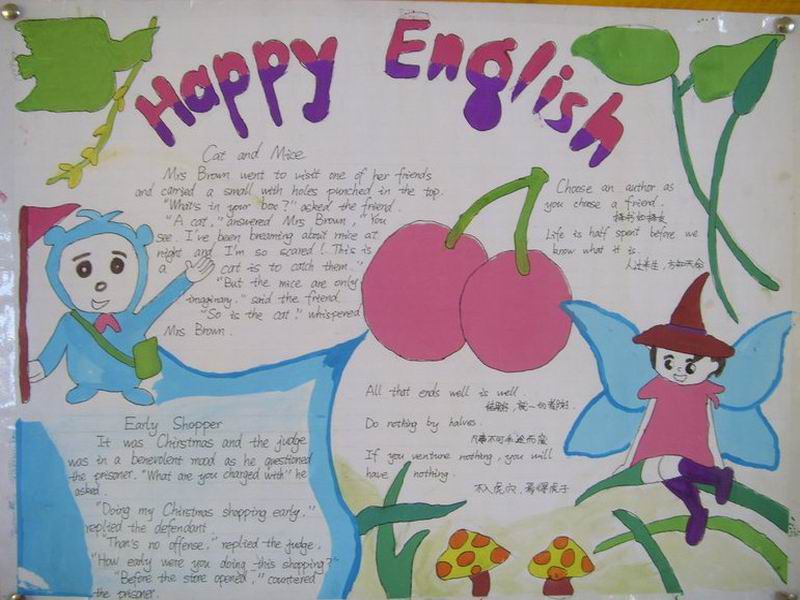 Happy English
Cat and Mice
Mrs Brown went to visit one of her friends
and carried a small with holes punched in the top.
"What's in your box?" asked the friend.
"A cat," answered Mrs Brown, "You
see. I've been breaming about mice at
night and I'm so scared! This is
a cat is to catch them."
"But the mice are only
imaginary." said the friend
"So is the cat." whispered
Mrs Brown.
Choose an author as
you choose a friend.
择书如择友
Life is half spent before we
know what it is.
人过半生，方知天命
All that ends well is well.
结果好，就一切都好.
Do nothing by halves.
凡事不可半途而废
If you venture nothing, you will
have nothing.
不入虎穴，焉得虎子
Early Shopper
It was Chirstmas and the judge
was in a benevolent mood as he questioned
the prisoner. "What are you charged with" he
asked.
"Doing my Chirstmas shopping early."
replied the defendant
"That's no offense," replied the judge.
"How early were you doing this shopping?"
"Before the store opened," countered
the prisoner.